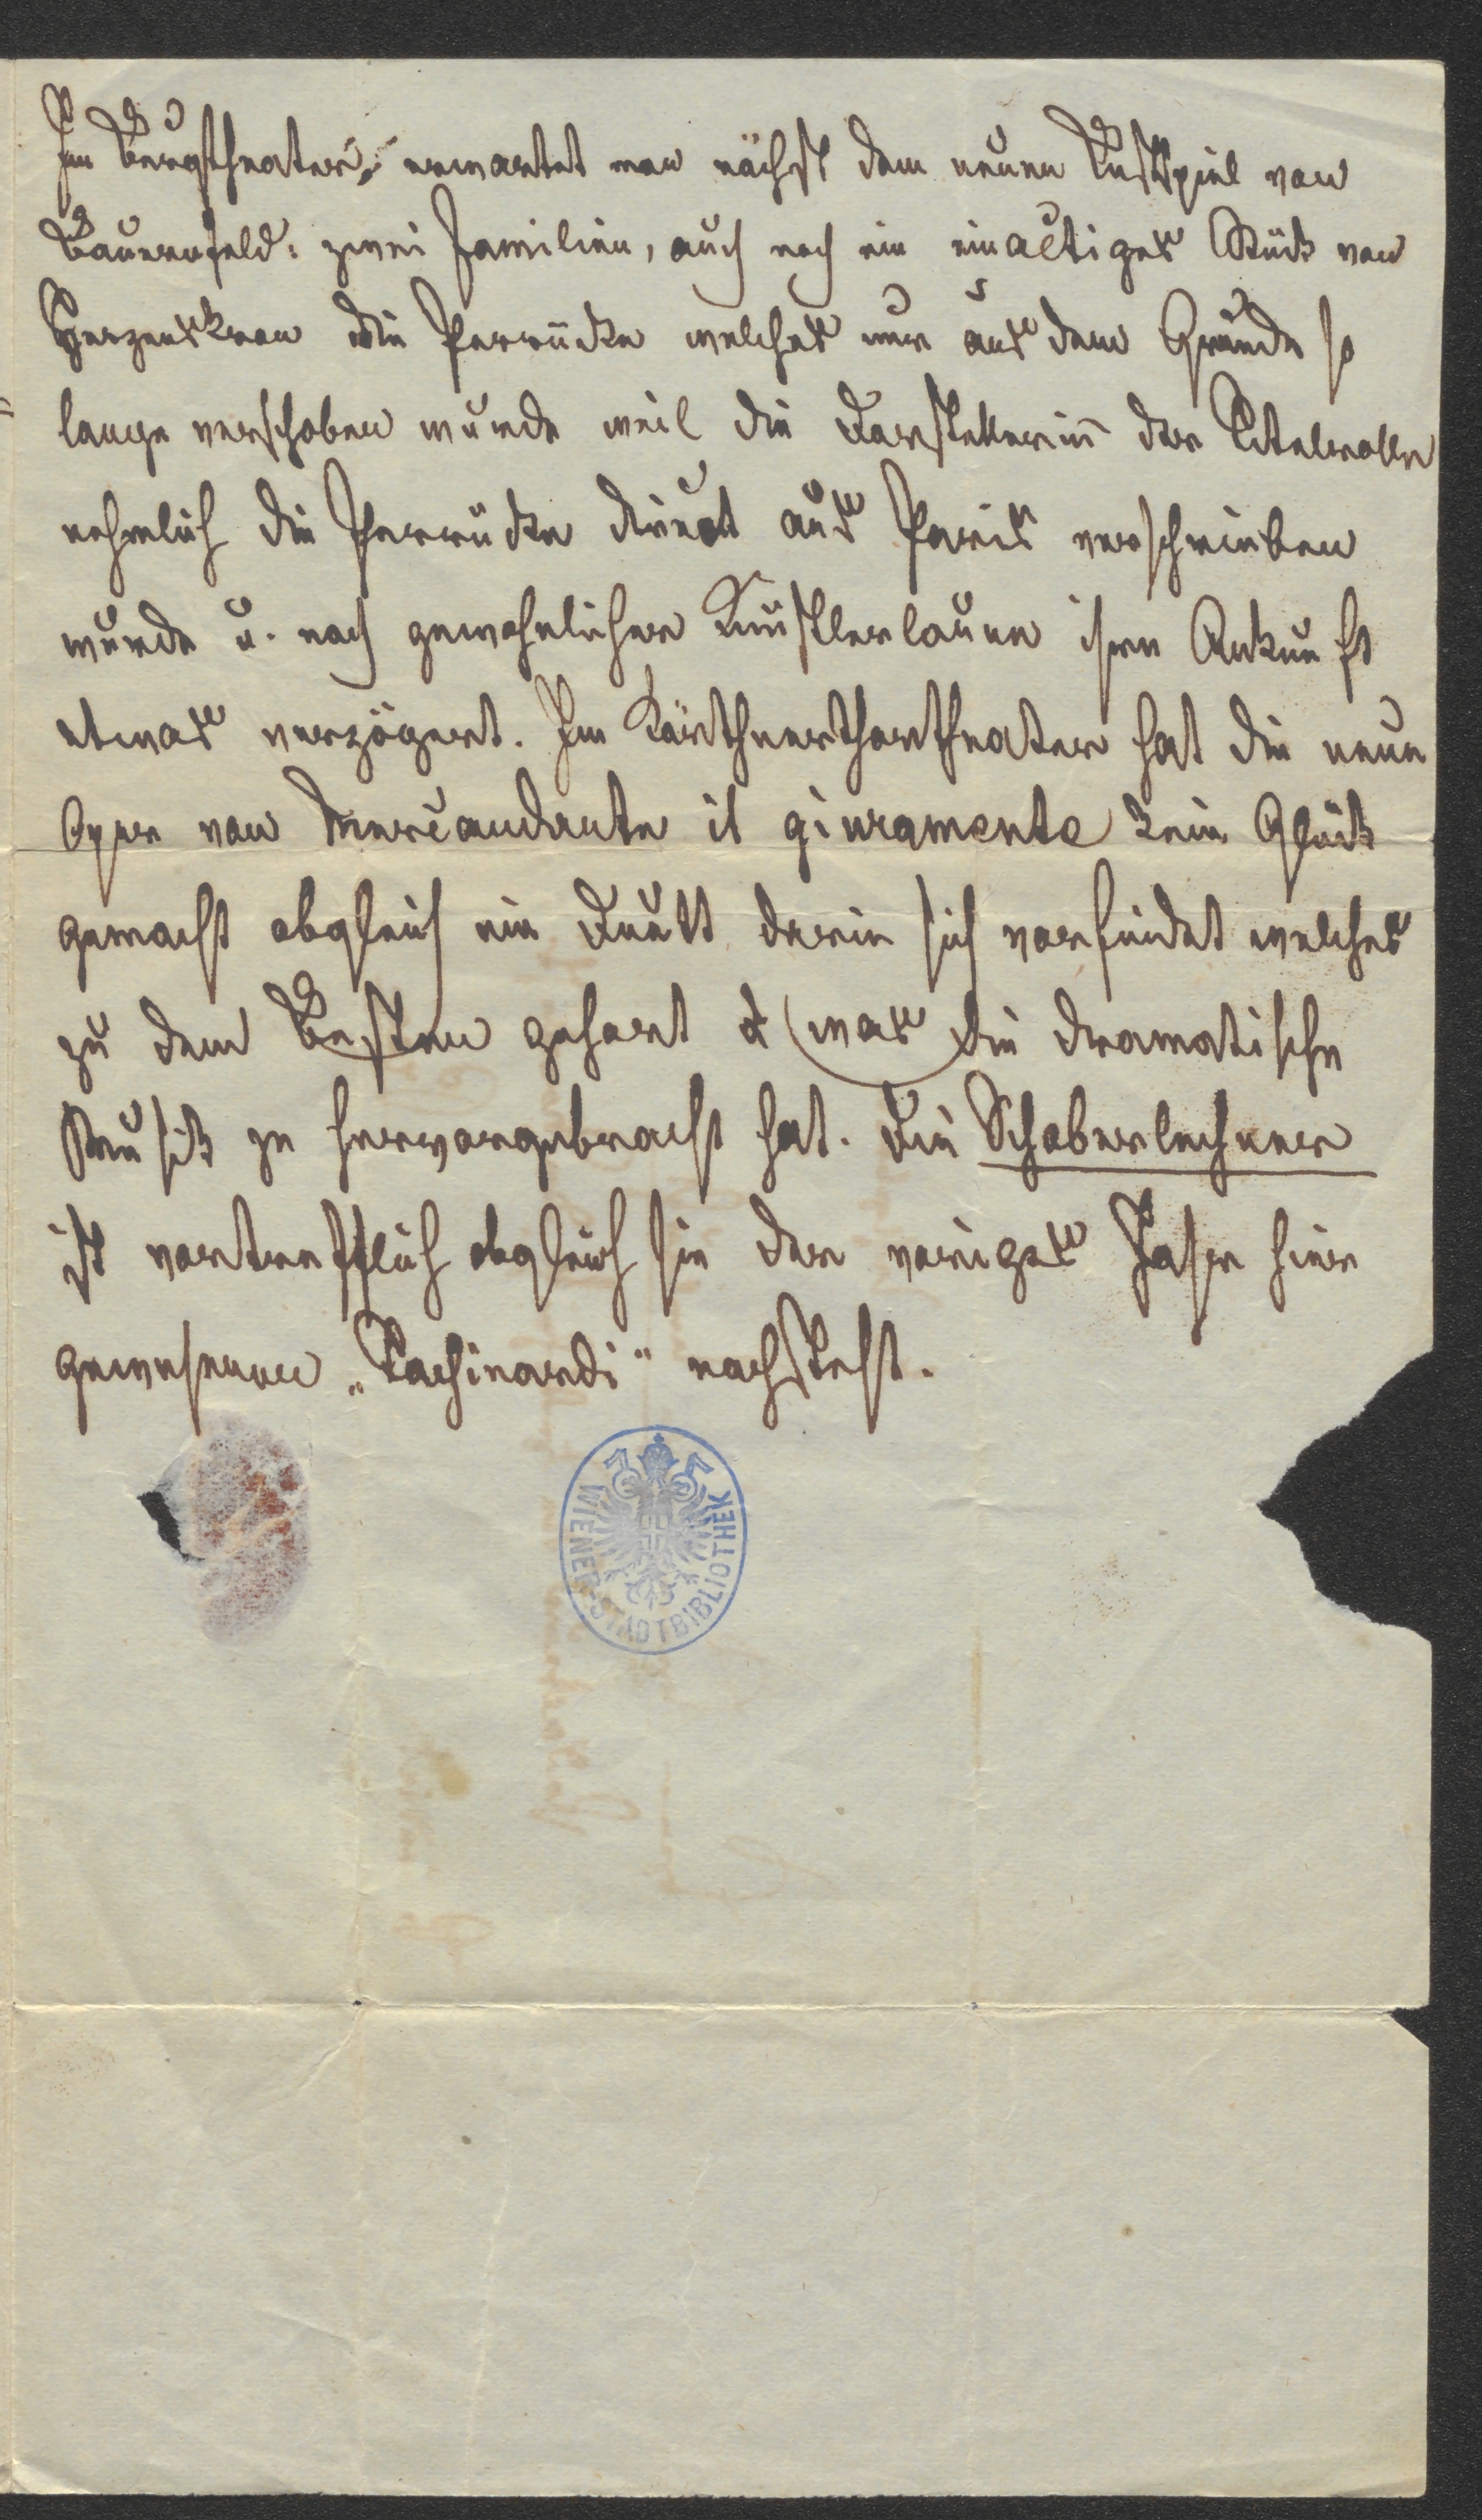 Im Burgtheater, erwartet man nächst dem neuen Lustspiel von
Bauernfeld: zwei Familien, auch noch ein einactiges Stück von
Herzenskron die Perrücke welches nur aus dem Grunde so
lange verschoben wurde weil die Darstellerin̄ der Titelrolle
nehmlich die Perrücke direct aus Paris verschrieben
wurde u. nach gewohnlicher Künstlerlaune ihre Ankunft
etwas verzögert. Im Kärthnerthortheater hat die neue
Oper von Mercandente il giuramento kein Glück
gemacht obgleich ein Duett darin sich vorfindet welches
zu dem Besten gehort was die dramatische
Musik je hervorgebracht hat. Die Schoberlechner
ist vortrefflich obgleich sie der voriges Jahr hier
gewesenen „Tachinardi" nachsteht.
WIENER-STADTBIBLIOTHEK